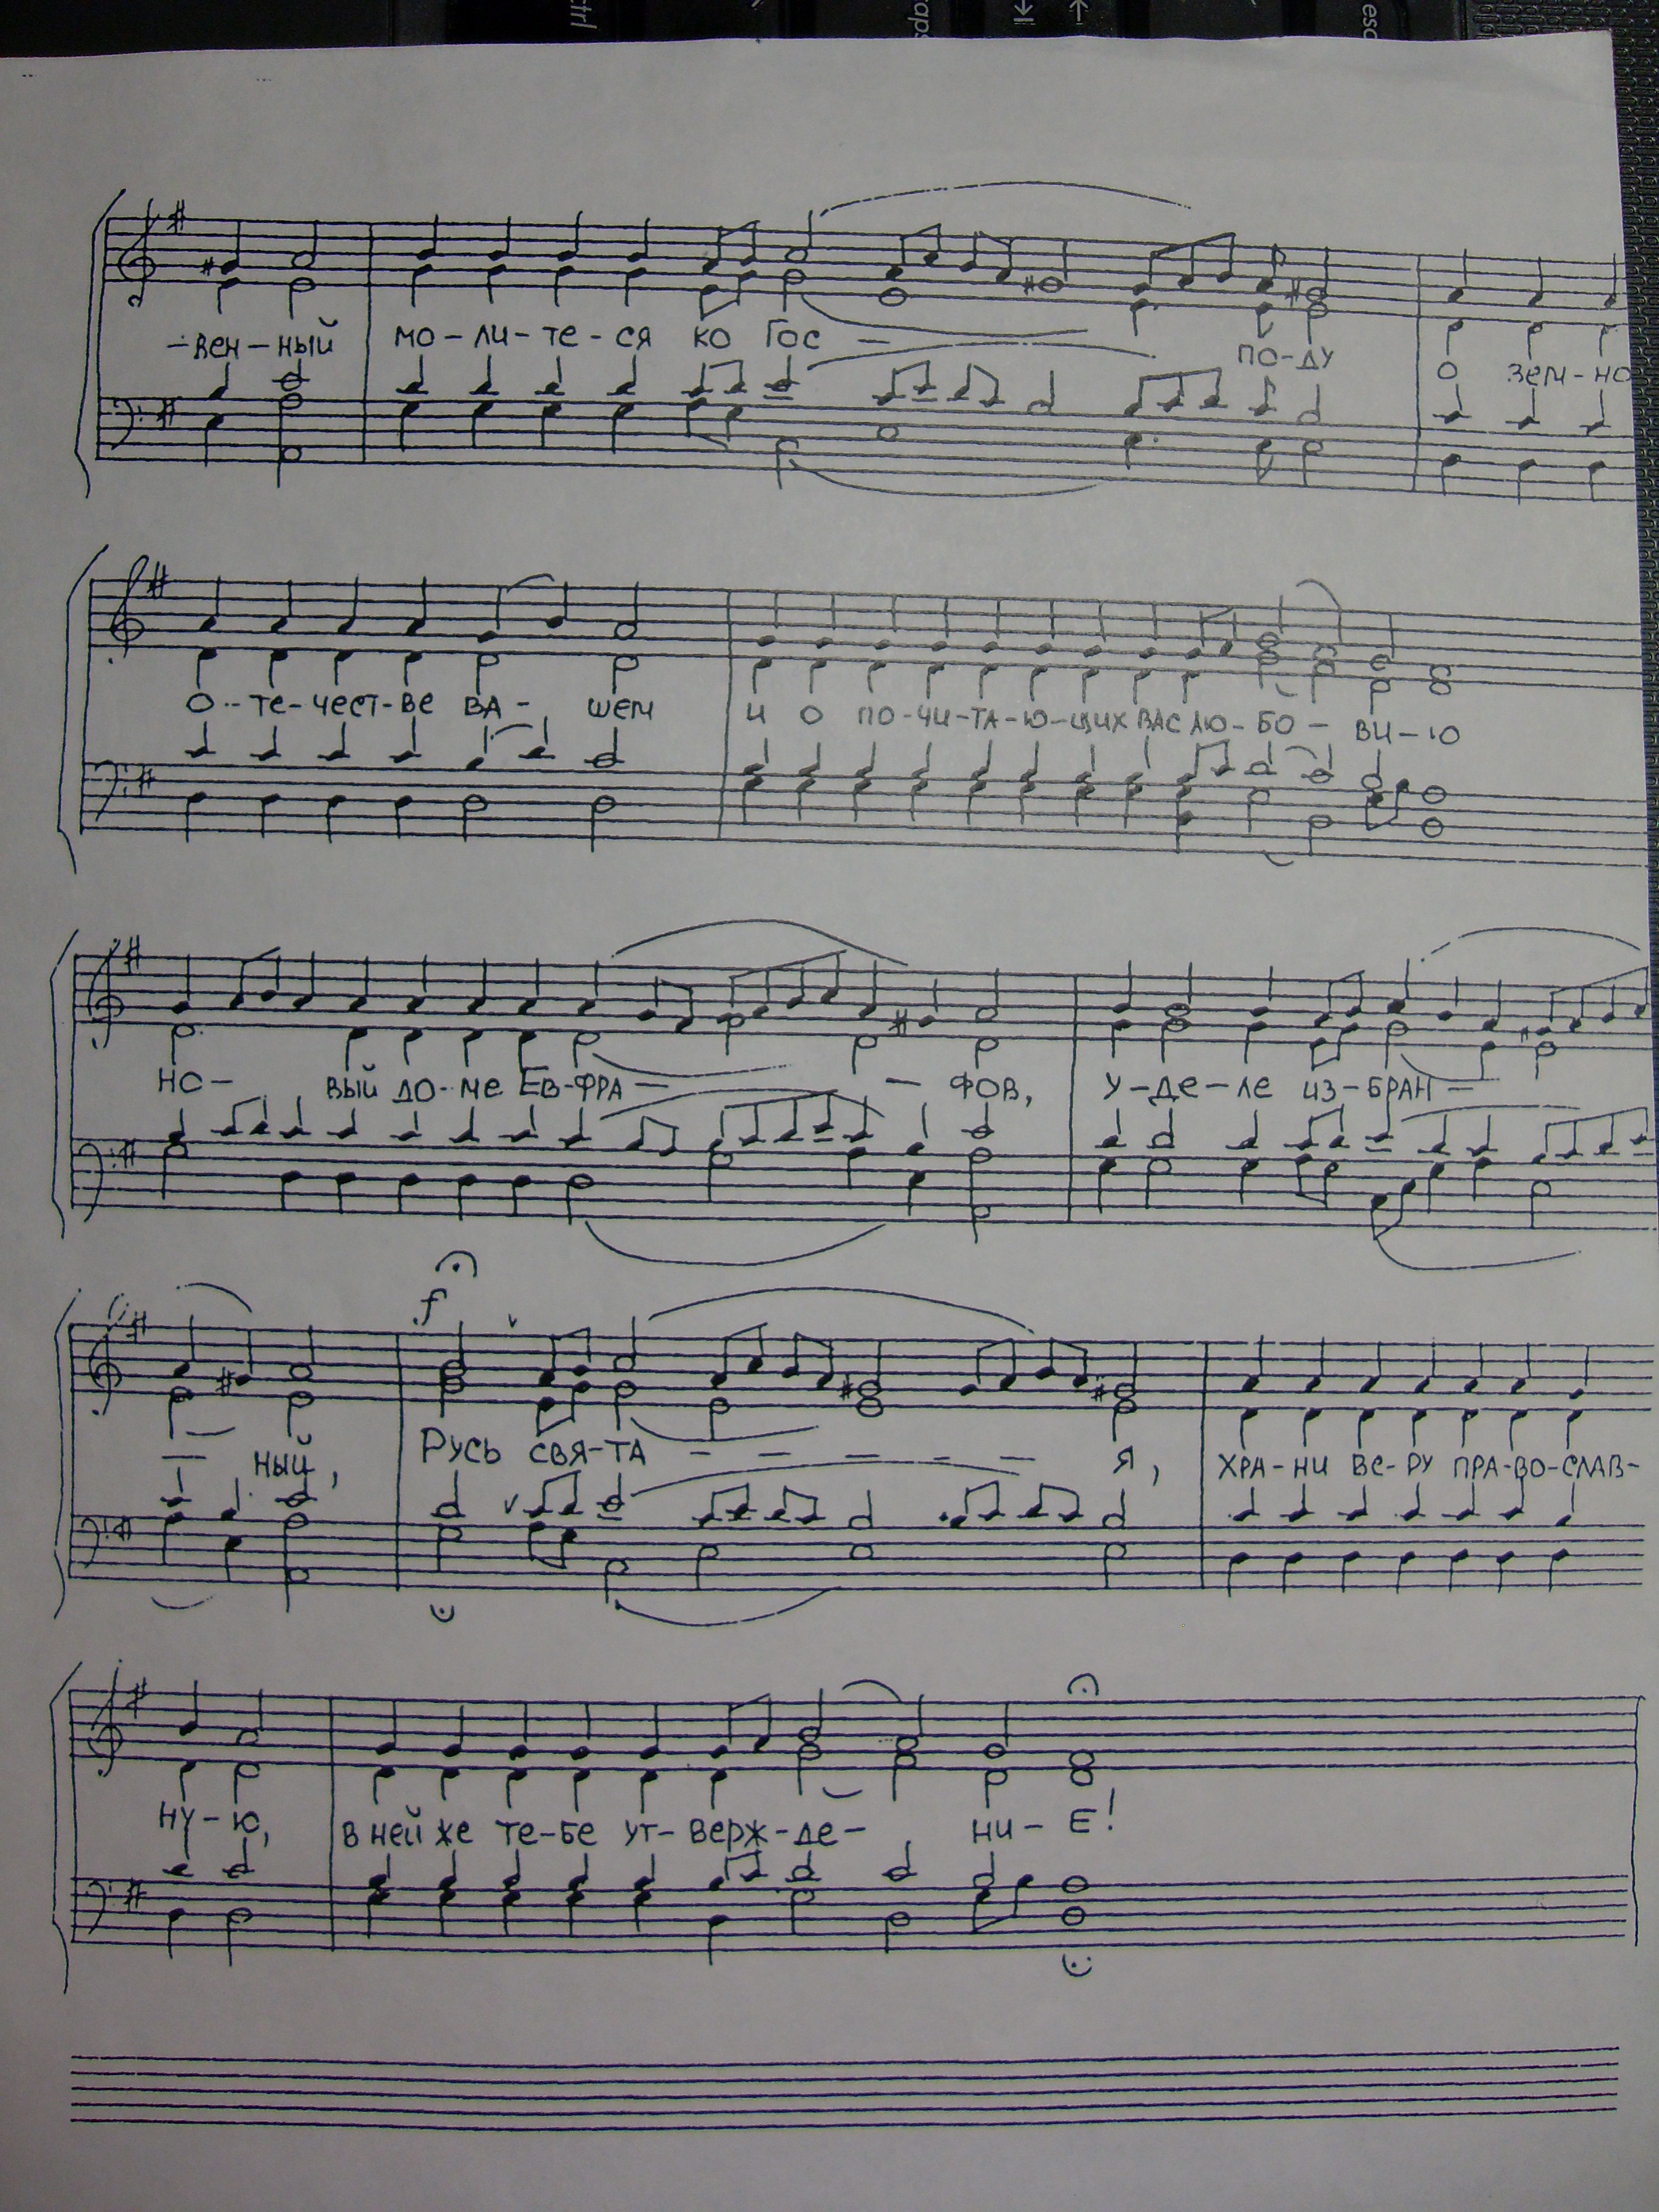 ctrl
caps
esc
-вен-ный мо-ли-те-ся ко Гос - по-ду о зем-но
О-те-чест-ве ва- шем и о по-чи-та-ю-щих вас лю-бо- ви-ю
но- вый до-ме Ев-фра- - фов, у-де-ле из-бран-
f
- ный, Русь свя-та - - - - - я, хра-ни ве-ру пра-во-слав-
ну-ю, в ней же те-бе ут-верж-де- ни-е!